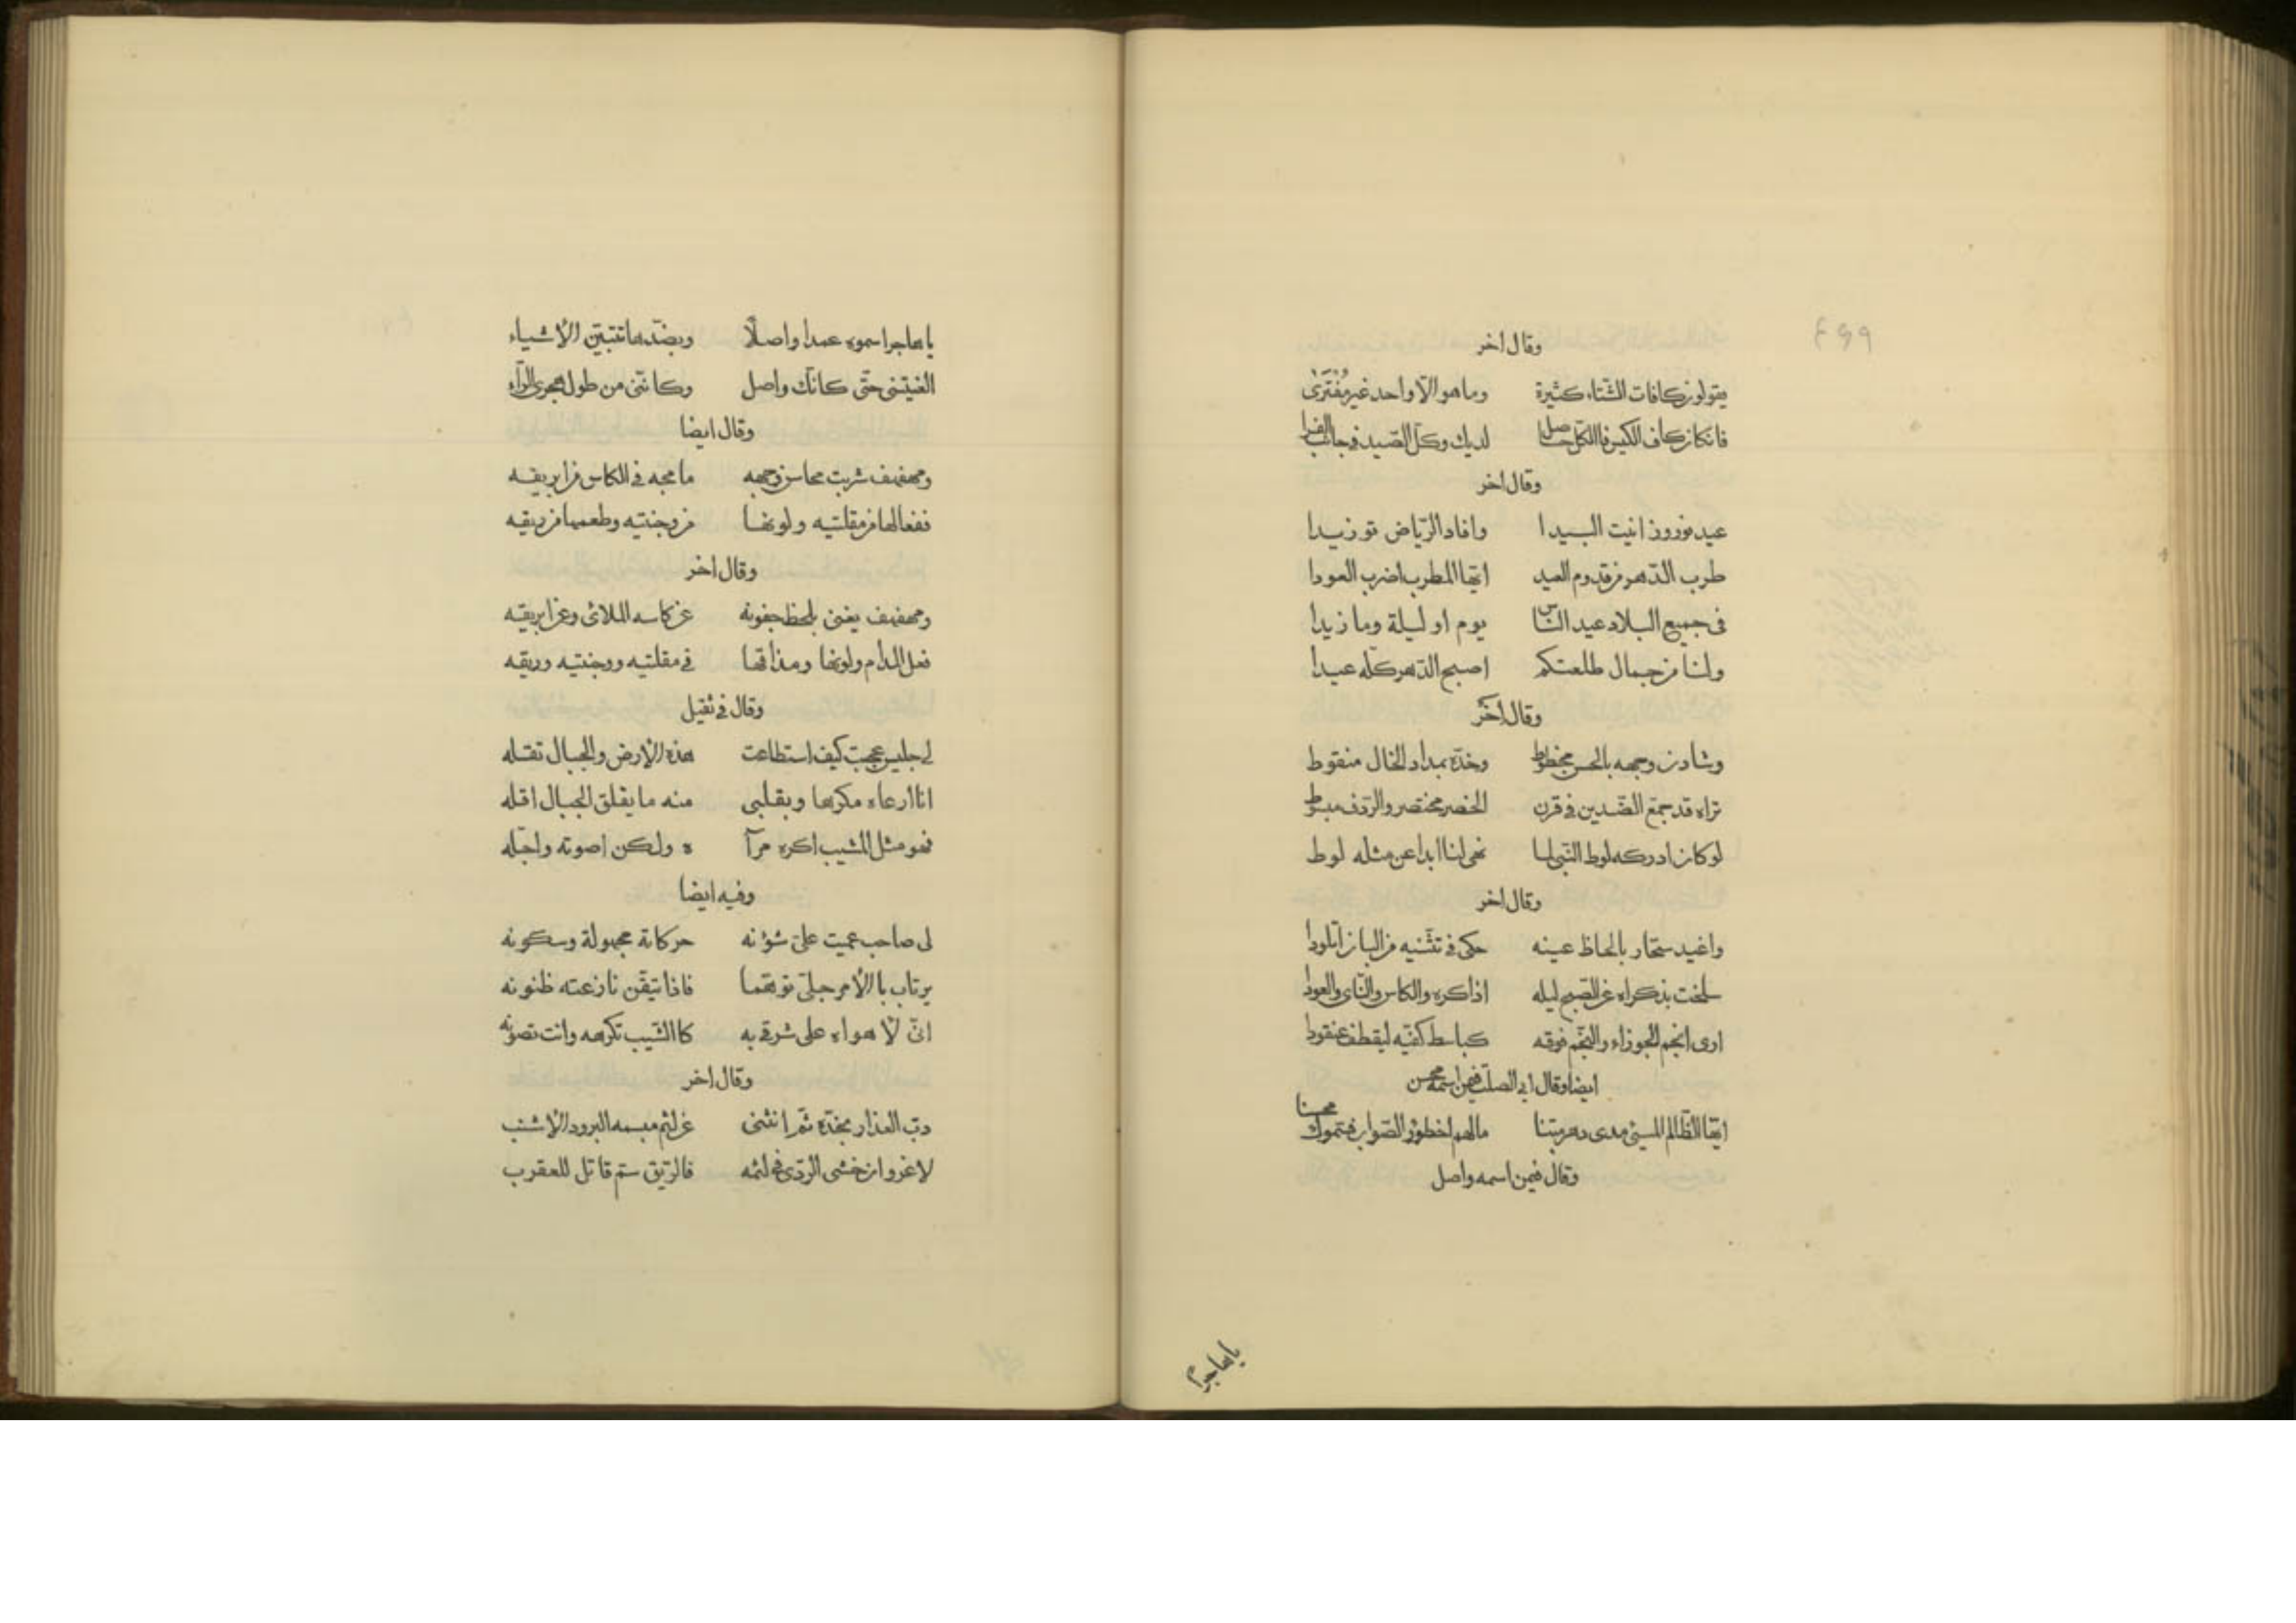 ٤٩٩
وقال اخر
يقولون كافات الشتاء كثيرة وما هو الا واحد غير مفترى
فان كان كاف الكيس فالكل حاصل لديك وكل الصيد في جانب الفرا
وقال اخر
عيد نوروز انيت السيدا وافاد الرياض توزيدا
طرب الدهر من قدوم العيد ايها المطرب اضرب العودا
في جميع البلاد عيد الناس يوم او ليلة وما زيدا
ولنا من جمال طلعتكم اصبح الدهر كله عيدا
وقال اخر
وشادن وجهه بالحسن مخطوط وخده بمداد الخال منقوط
تراه قد جمع الضدين في قرن الخصر مختصر والردف مبسوط
لو كان ادركه لوط النبي لما نهى لنا ابدا عن مثله لوط
وقال اخر
واغيد سحار بالحاظ عينه حكى في تثنيه من البان املودا
سلخت بذكراه عن الصبح ليله اذاكره والكاس والناي والعودا
ارى انجم الجوزاء والنجم فوقه كباسط كفيه ليقطف عنقودا
ايضا وقال ابي الصلت فيمن اسمه محسن
ايها الظالم المسيئ مدى دهر بتنا ما لهم اخطؤا الصواب فسموك محسنا
وقال فيمن اسمه واصل
يا هاجرا
يا هاجرا سموه عمدا واصلا وبضدها تتبين الأشياء
الغيتنى حتى كانك واصل وكاننى من طول هجرى الراء
وقال ايضا
ومهفهف شربت محاسن وجهه ما مجه في الكاس من ابريقه
ففعالها من مقلتيه ولونها من وجنتيه وطعمها من ريقه
وقال اخر
ومهفهف يغنى بلحظ جفونه عن كاسه الملائى وعن ابريقه
فعل المدام ولونها ومذاقها في مقلتيه ووجنتيه وريقه
وقال في ثقيل
لى جليس عجبت كيف استطاعت هذه الأرض والجبال تقله
انا ارعاه مكرها وبقلبي منه ما يقلق الجبال اقله
فهو مثل المشيب اكره مرآ ه ولكن اصونه واجله
وفيه ايضا
لى صاحب عميت على شؤنه حركاته مجهولة وسكونه
يرتاب بالأمر جلى توهما فاذا تيقن نازعته ظنونه
انى لأهواه على شرقى به كا الشيب تكرهه وانت تصونه
وقال اخر
دب العذار بخده ثم انثنى عن لثم مبسمه البرود الأشنب
لا غرو ان خشى الردى في لثمه فالريق سم قاتل للعقرب